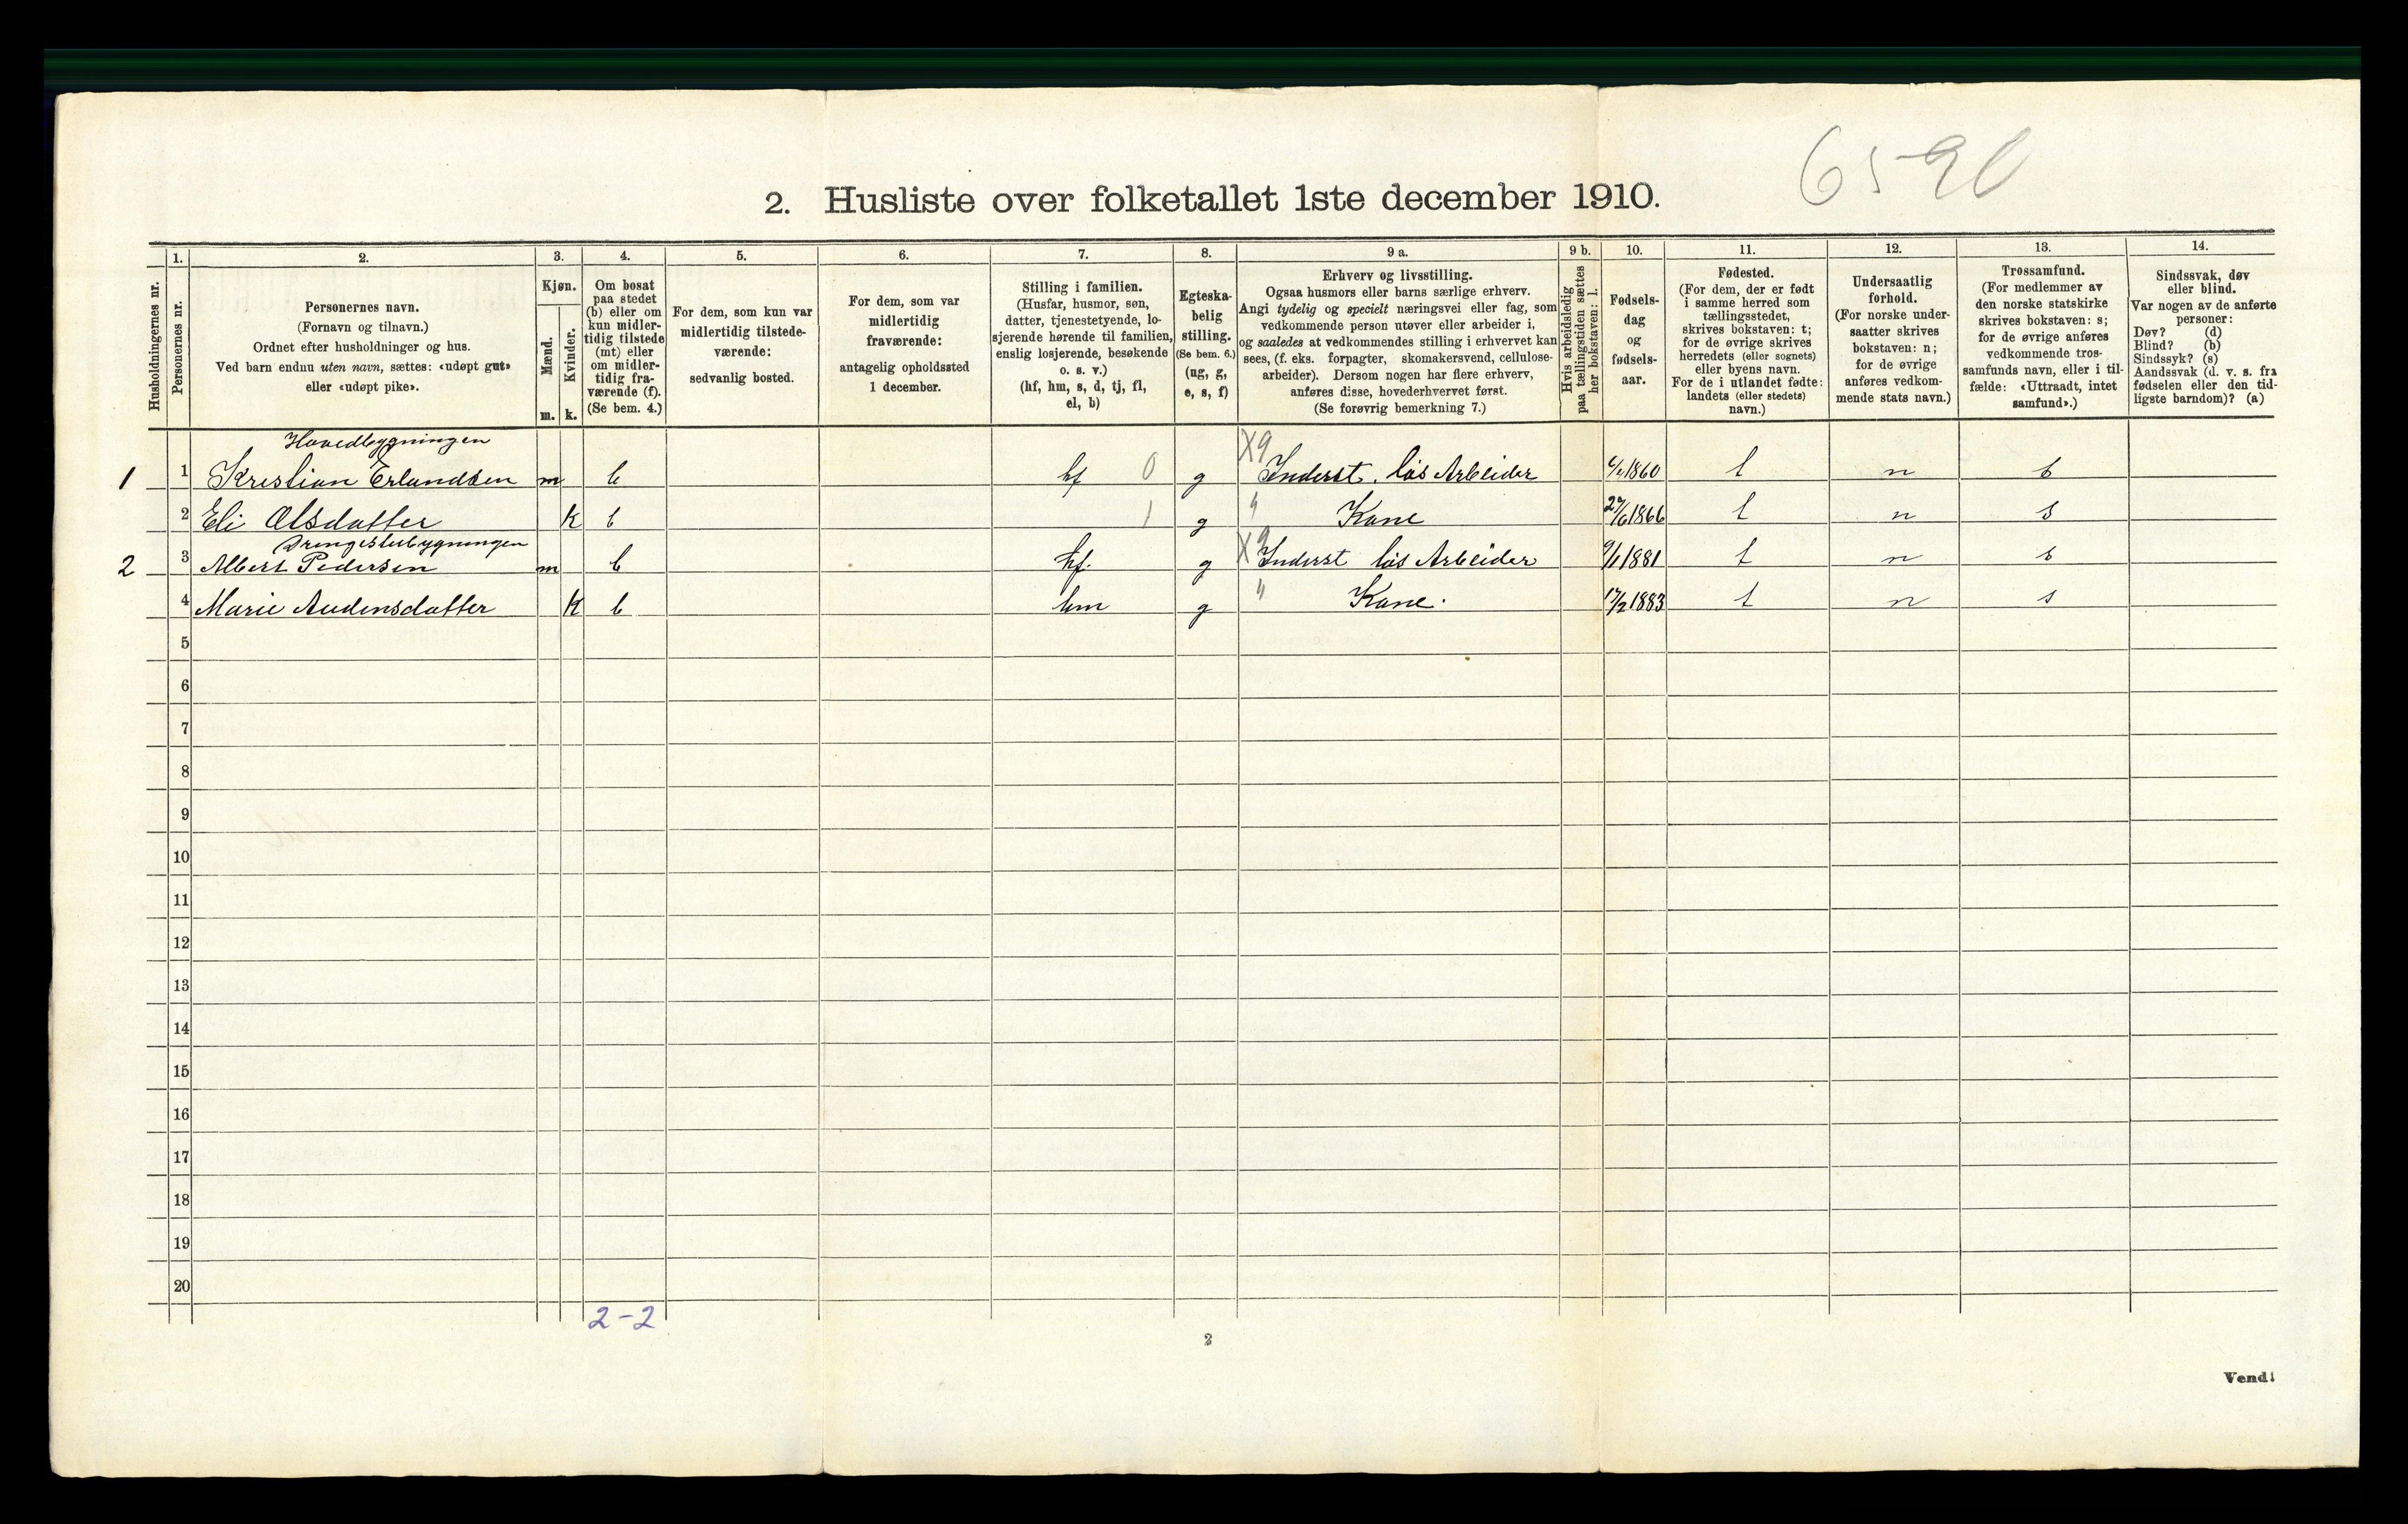 6590
2. Husliste over folketallet 1ste december 1910.
Husholdningernes nr.
1.
Personernes nr.
2.
Personernes navn.
(Fornavn og tilnavn.)
Ordnet efter husholdninger og hus.
Ved barn endnu uten navn, sættes: «udøpt gut»
eller «udøpt pike».
3.
Kjøn.
Mænd.
m.
Kvinder.
k.
4.
Om bosat
paa stedet
(b) eller om
kun midler-
tidig tilstede
(mt) eller
om midler-
tidig fra-
værende (f).
(Se bem. 4.)
5.
For dem, som kun var
midlertidig tilstede-
værende:
sedvanlig bosted.
6.
For dem, som var
midlertidig
fraværende:
antagelig opholdssted
1 december.
7.
Stilling i familien.
(Husfar, husmor, søn,
datter, tjenestetyende, lo-
sjerende hørende til familien,
enslig losjerende, besøkende
o. s. v.)
(hf, hm, s, d, tj, fl,
el, b)
8.
Egteska-
belig
stilling.
(Se bem. 6.)
(ug, g,
e, s, f)
9 a.
Erhverv og livsstilling.
Ogsaa husmors eller barns særlige erhverv.
Angi tydelig og specielt næringsvei eller fag, som
vedkommende person utøver eller arbeider i,
og saaledes at vedkommendes stilling i erhvervet kan
sees, (f. eks. forpagter, skomakersvend, cellulose-
arbeider). Dersom nogen har flere erhverv,
anføres disse, hovederhvervet først.
(Se forøvrig bemerkning 7.)
9 b.
Hvis arbeidsledig
paa tællingstiden sættes
her bokstaven: l.
10.
Fødsels-
dag
og
fødsels-
aar.
11.
Fødested.
(For dem, der er født
i samme herred som
tællingsstedet,
skrives bokstaven: t;
for de øvrige skrives
herredets (eller sognets)
eller byens navn.
For de i utlandet fødte:
landets (eller stedets)
navn.)
12.
Undersaatlig
forhold.
(For norske under-
saatter skrives
bokstaven: n;
for de øvrige
anføres vedkom-
mende stats navn.)
13.
Trossamfund.
(For medlemmer av
den norske statskirke
skrives bokstaven: s;
for de øvrige anføres
vedkommende tros-
samfunds navn, eller i til-
fælde: «Uttraadt, intet
samfund».)
14.
Sindssvak, døv
eller blind.
Var nogen av de anførte
personer:
Døv? (d)
Blind? (b)
Sindssyk? (s)
Aandssvak (d. v. s. fra
fødselen eller den tid-
ligste barndom)? (a)
Hovedbygningen
1 1 Kristian Erlandsen m b hf 0 g X9 Inderst. løs Arbeider 1860 t n s
2 Eli Olsdatter k b 1 g " Kone 27/6 1866 t n s
Drengestubygningen
2 3 Albert Pedersen m b hf. g X9 Inderst løs Arbeider 9/1 1881 t n s
4 Marie Audensdatter k b hm g " Kone. 17/2 1883 t n s
5
6
7
8
9
10
11
12
13
14
15
16
17
18
19
20
2-2
2
Vend!